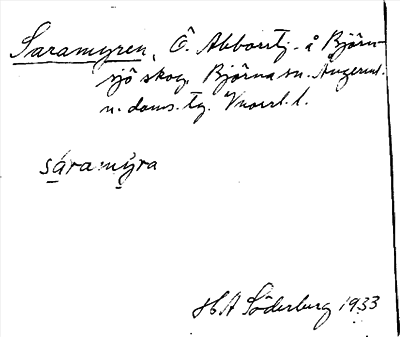 Saramyren, Ö. Abborrtj. å Björn-
sjö skog, Björna sn. Ångerml.
n. doms. tg. Vnorrl. l.
sáramỳra
H A Söderberg 1933